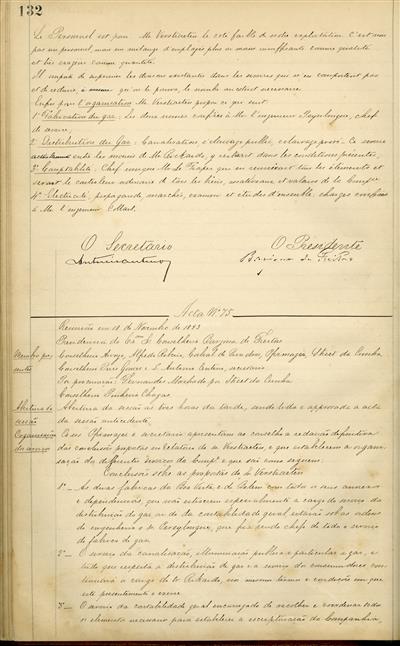 132
Le Personnel est pour Mr Verstraeten le coté faible de notre exploitation. C'est non
pas un personnel, mais un mélange d'employés plus ou moins insuffisants comme qualité
et très exagéré comme quantité.
Il importe de supprimer les dans les services qui ne en comportent pas
et de réduire à ce qu'on le pourra, le nombre au strict nécessaire.
Enfin pour l'organisation Mr Verstraeten propose ce qui suit:
1º Fabrication du gaz: Les deux usines confiées à Mr l'ingenieur chef
de service.
2º Distribution du Gaz: Canalisation, éclairage public, éclairage privé. Ce service
entre les mains de Mr Pickards, y restant dans les conditions présentes.
3º Comptabilité: Chef unique Mr Le qui en réunissant tous les éléments et
serait le controleur ordinaire de tous les biens, matériaux et valeurs de la Compie
4º Electricité, propagande, marchés, examen et études d'ensemble, charges confiées
à Mr l'ingenieur Collart.
O Secretario
O Presidente
Acta Nº 75
Reunião em 18 de Novembro de 1893
Presidencia do Exmo Sr Conselheiro de Freitas
Membros presentes
Conselheiros Arroyo, Alfredo Ribeiro, Cabral de , Street da Cunha
Conselheiro Pires Gomes e S. Antonio Centeno, secretario
Por procuração: Fernandes Machado por Street da Cunha
Conselheiro Pinheiro Chagas
Abertura da sessão
Abertura da sessão ás tres horas da tarde, sendo lida e approvada a acta
da sessão antecedente.
Organisação do serviço
Os e secretario apresentam ao conselho a redacção definitiva
das conclusões propostas no relatorio de sr Verstraeten, e que estabelecem a organi-
sação dos differentes serviços da Compª e que são como seguem:
Conclusões sobre as propostas do sr Verstraeten
1º — As duas fabricas da Boa Vista e de Belem com todos os seus annexos
e dependencias, que não estiverem especialmente a cargo do serviço da
distribuição do gaz ou do da contabilidade geral estarão sob as ordens
do engenheiro o sr que fica sendo chefe de todo o serviço
de fabrico do gaz.
2º — O serviço da canalisação, illuminação publica e particular a gaz, e
tudo que respeita á distribuição do gaz e a serviço do consumidores con-
tinuará a cargo do sr Pickards, nos mesmos termos e condições em que
este presentemente o exerce.
3º — O serviço da contabilidade geral encarregado de recolher e coordenar todos
os elementos necessarios para estabelecer a escripturação da Companhia,